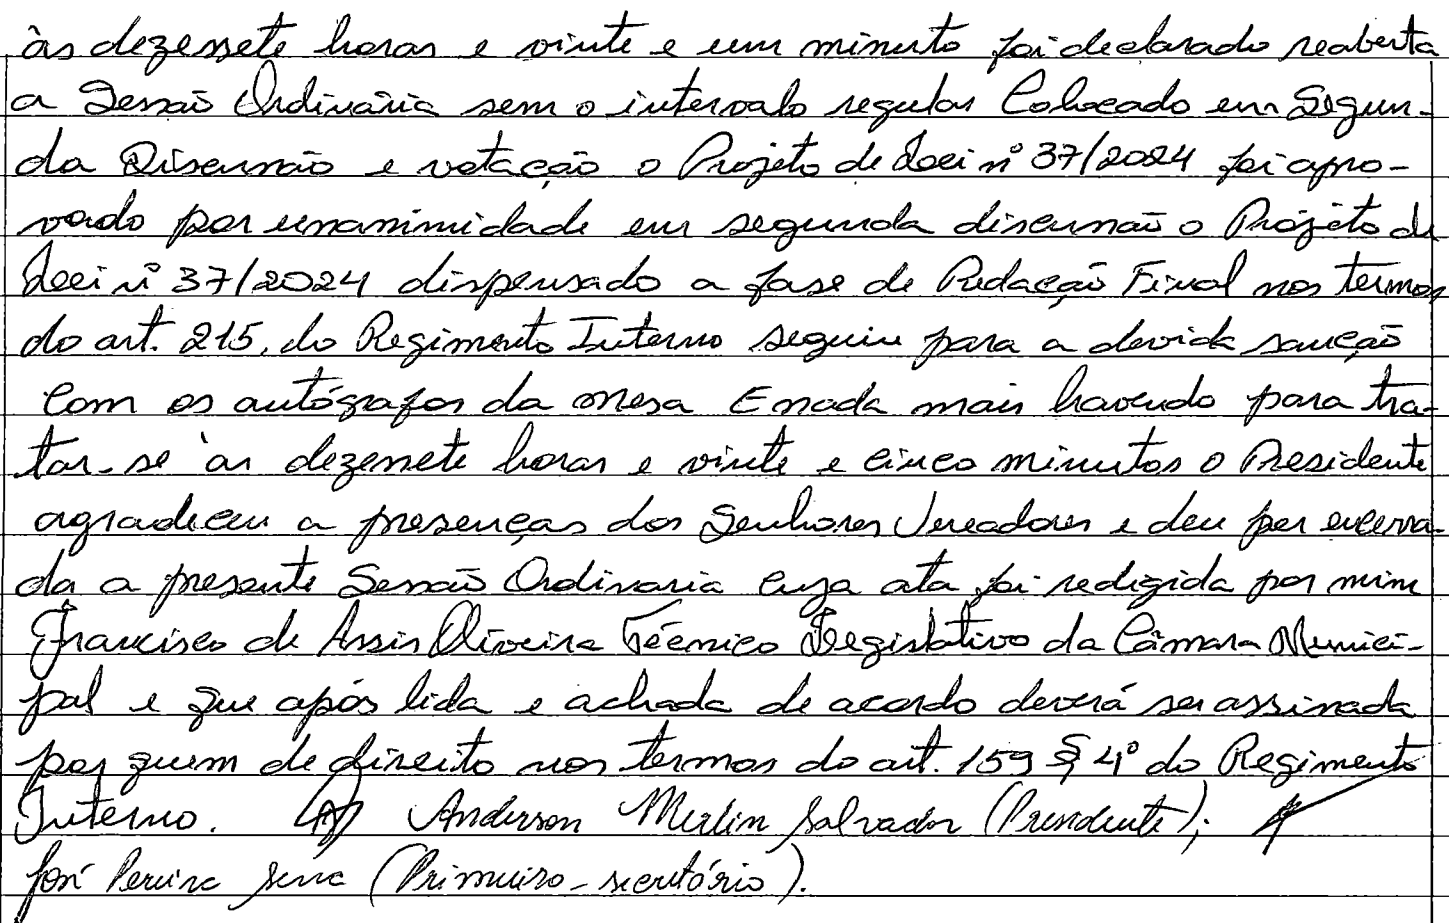 às dezessete horas e vinte e um minuto foi declarado reaberta
a Sessão Ordinária sem o intervalo regular Colocado em Segun-
da Discussão e votação o Projeto de Lei nº 37/2024 foi apro-
vado por unanimidade em segunda discussão o Projeto de
Lei nº 37/2024 dispensado a fase de Redação Final nos termos
do art. 215, do Regimento Interno seguiu para a devida sanção
Com os autógrafos da mesa E nada mais havendo para tra-
tar-se às dezessete horas e vinte e cinco minutos o Presidente
agradeceu a presenças dos Senhores Vereadores e deu por encerra-
da a presente Sessão Ordinaria cuja ata foi redigida por mim
Francisco de Assis Oliveira Técnico Legislativo da Câmara Munici-
pal e que após lida e achada de acordo deverá ser assinada
por quem de direito nos termos do art. 159 § 4º do Regimento
Interno. Anderson Merlin Salvador (Presidente);
José Pereira Sena (Primeiro-secretário).